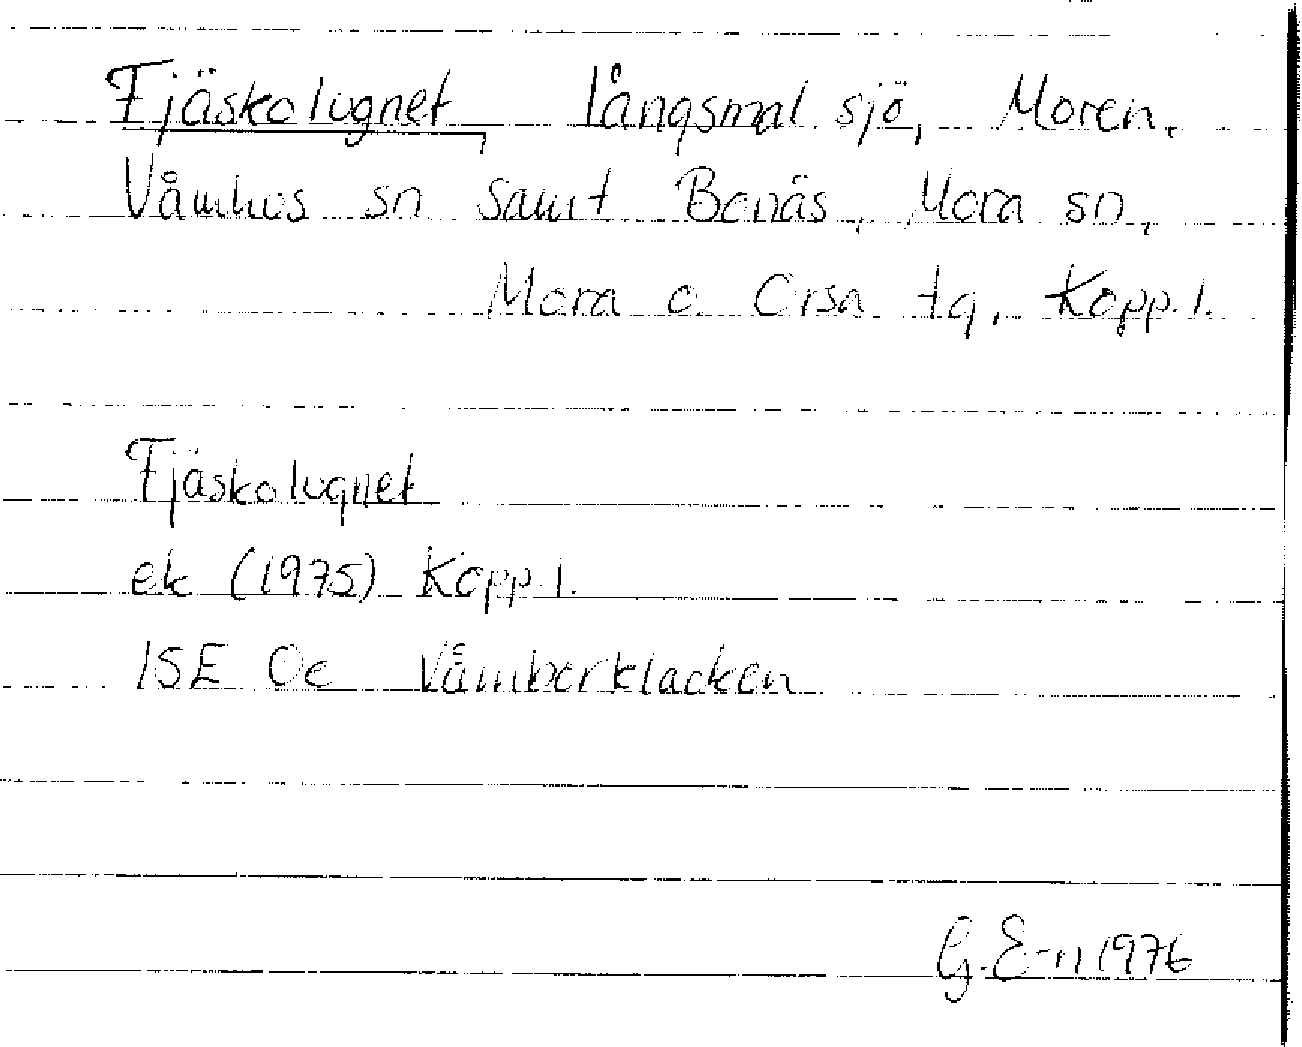 Fjäskolugnet, långsmal sjö, Moren,
Våmhus sn samt Bonäs, Mora sn,
Mora o. Orsa tg, Kopp. l.
Fjäskolugnet
ek (1975) Kopp. l.
15E Oe Våmberklacken
G. E-n 1976